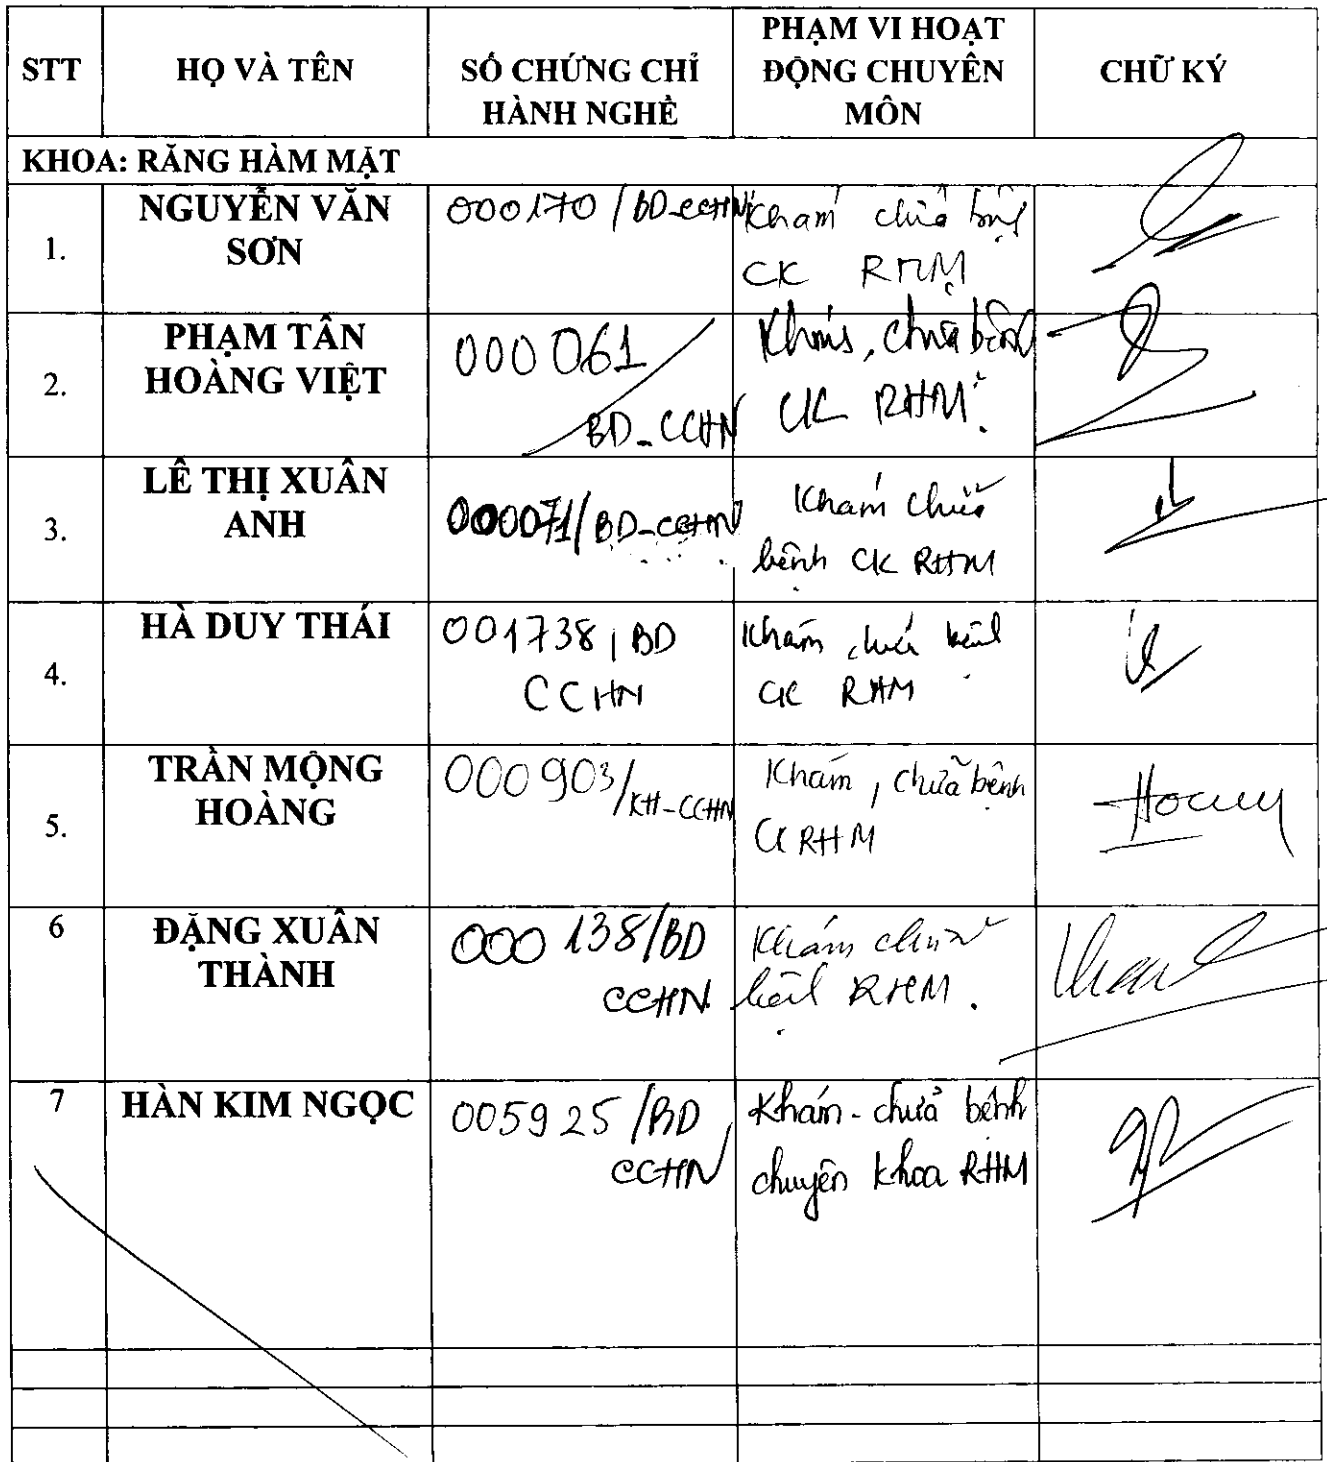 STT
HỌ VÀ TÊN
SỐ CHỨNG CHỈ
HÀNH NGHỀ
PHẠM VI HOẠT
ĐỘNG CHUYÊN
MÔN
CHỮ KÝ
KHOA: RĂNG HÀM MẶT
1.
NGUYỄN VĂN
SƠN
000170/BD-CCHN
Khám chữa bệnh
CK RHM
2.
PHẠM TÂN
HOÀNG VIỆT
000061
BD-CCHN
Khám, chữa bệnh
CK RHM.
3.
LÊ THỊ XUÂN
ANH
000071/BD-CCHN
Khám chữa
bệnh CK RHM
4.
HÀ DUY THÁI
001738/BD
CCHN
Khám chữa bệnh
CK RHM
5.
TRẦN MỘNG
HOÀNG
000903/KH-CCHN
Khám, chữa bệnh
CK RHM
6
ĐẶNG XUÂN
THÀNH
000138/BD
CCHN.
Khám chữa
bệnh RHM.
7
HÀN KIM NGỌC
005925/BD
CCHN
Khám - chữa bệnh
chuyên khoa RHM